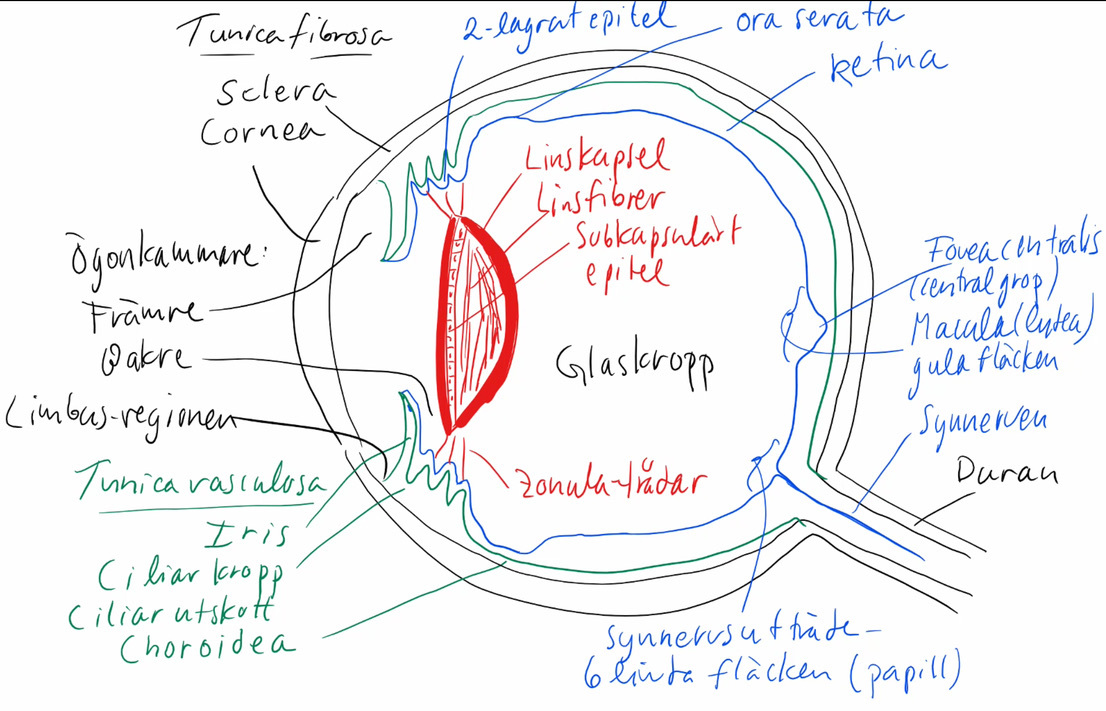 Tunica fibrosa
Sclera
Cornea
2-lagrat epitel
ora serata
Retina
Linskapsel
Linsfibrer
Subkapsulärt
epitel
Ögonkammare:
Främre
Bakre
Limbus-regionen
Glaskropp
Fovea centralis
(centralgrop)
Macula (lutea)
gula fläcken
Synnerven
Duran
Tunica vasculosa
Iris
Ciliarkropp
Ciliarutskott
Choroidea
Zonula-trådar
Synnervsutträde-
blinda fläcken (papill)